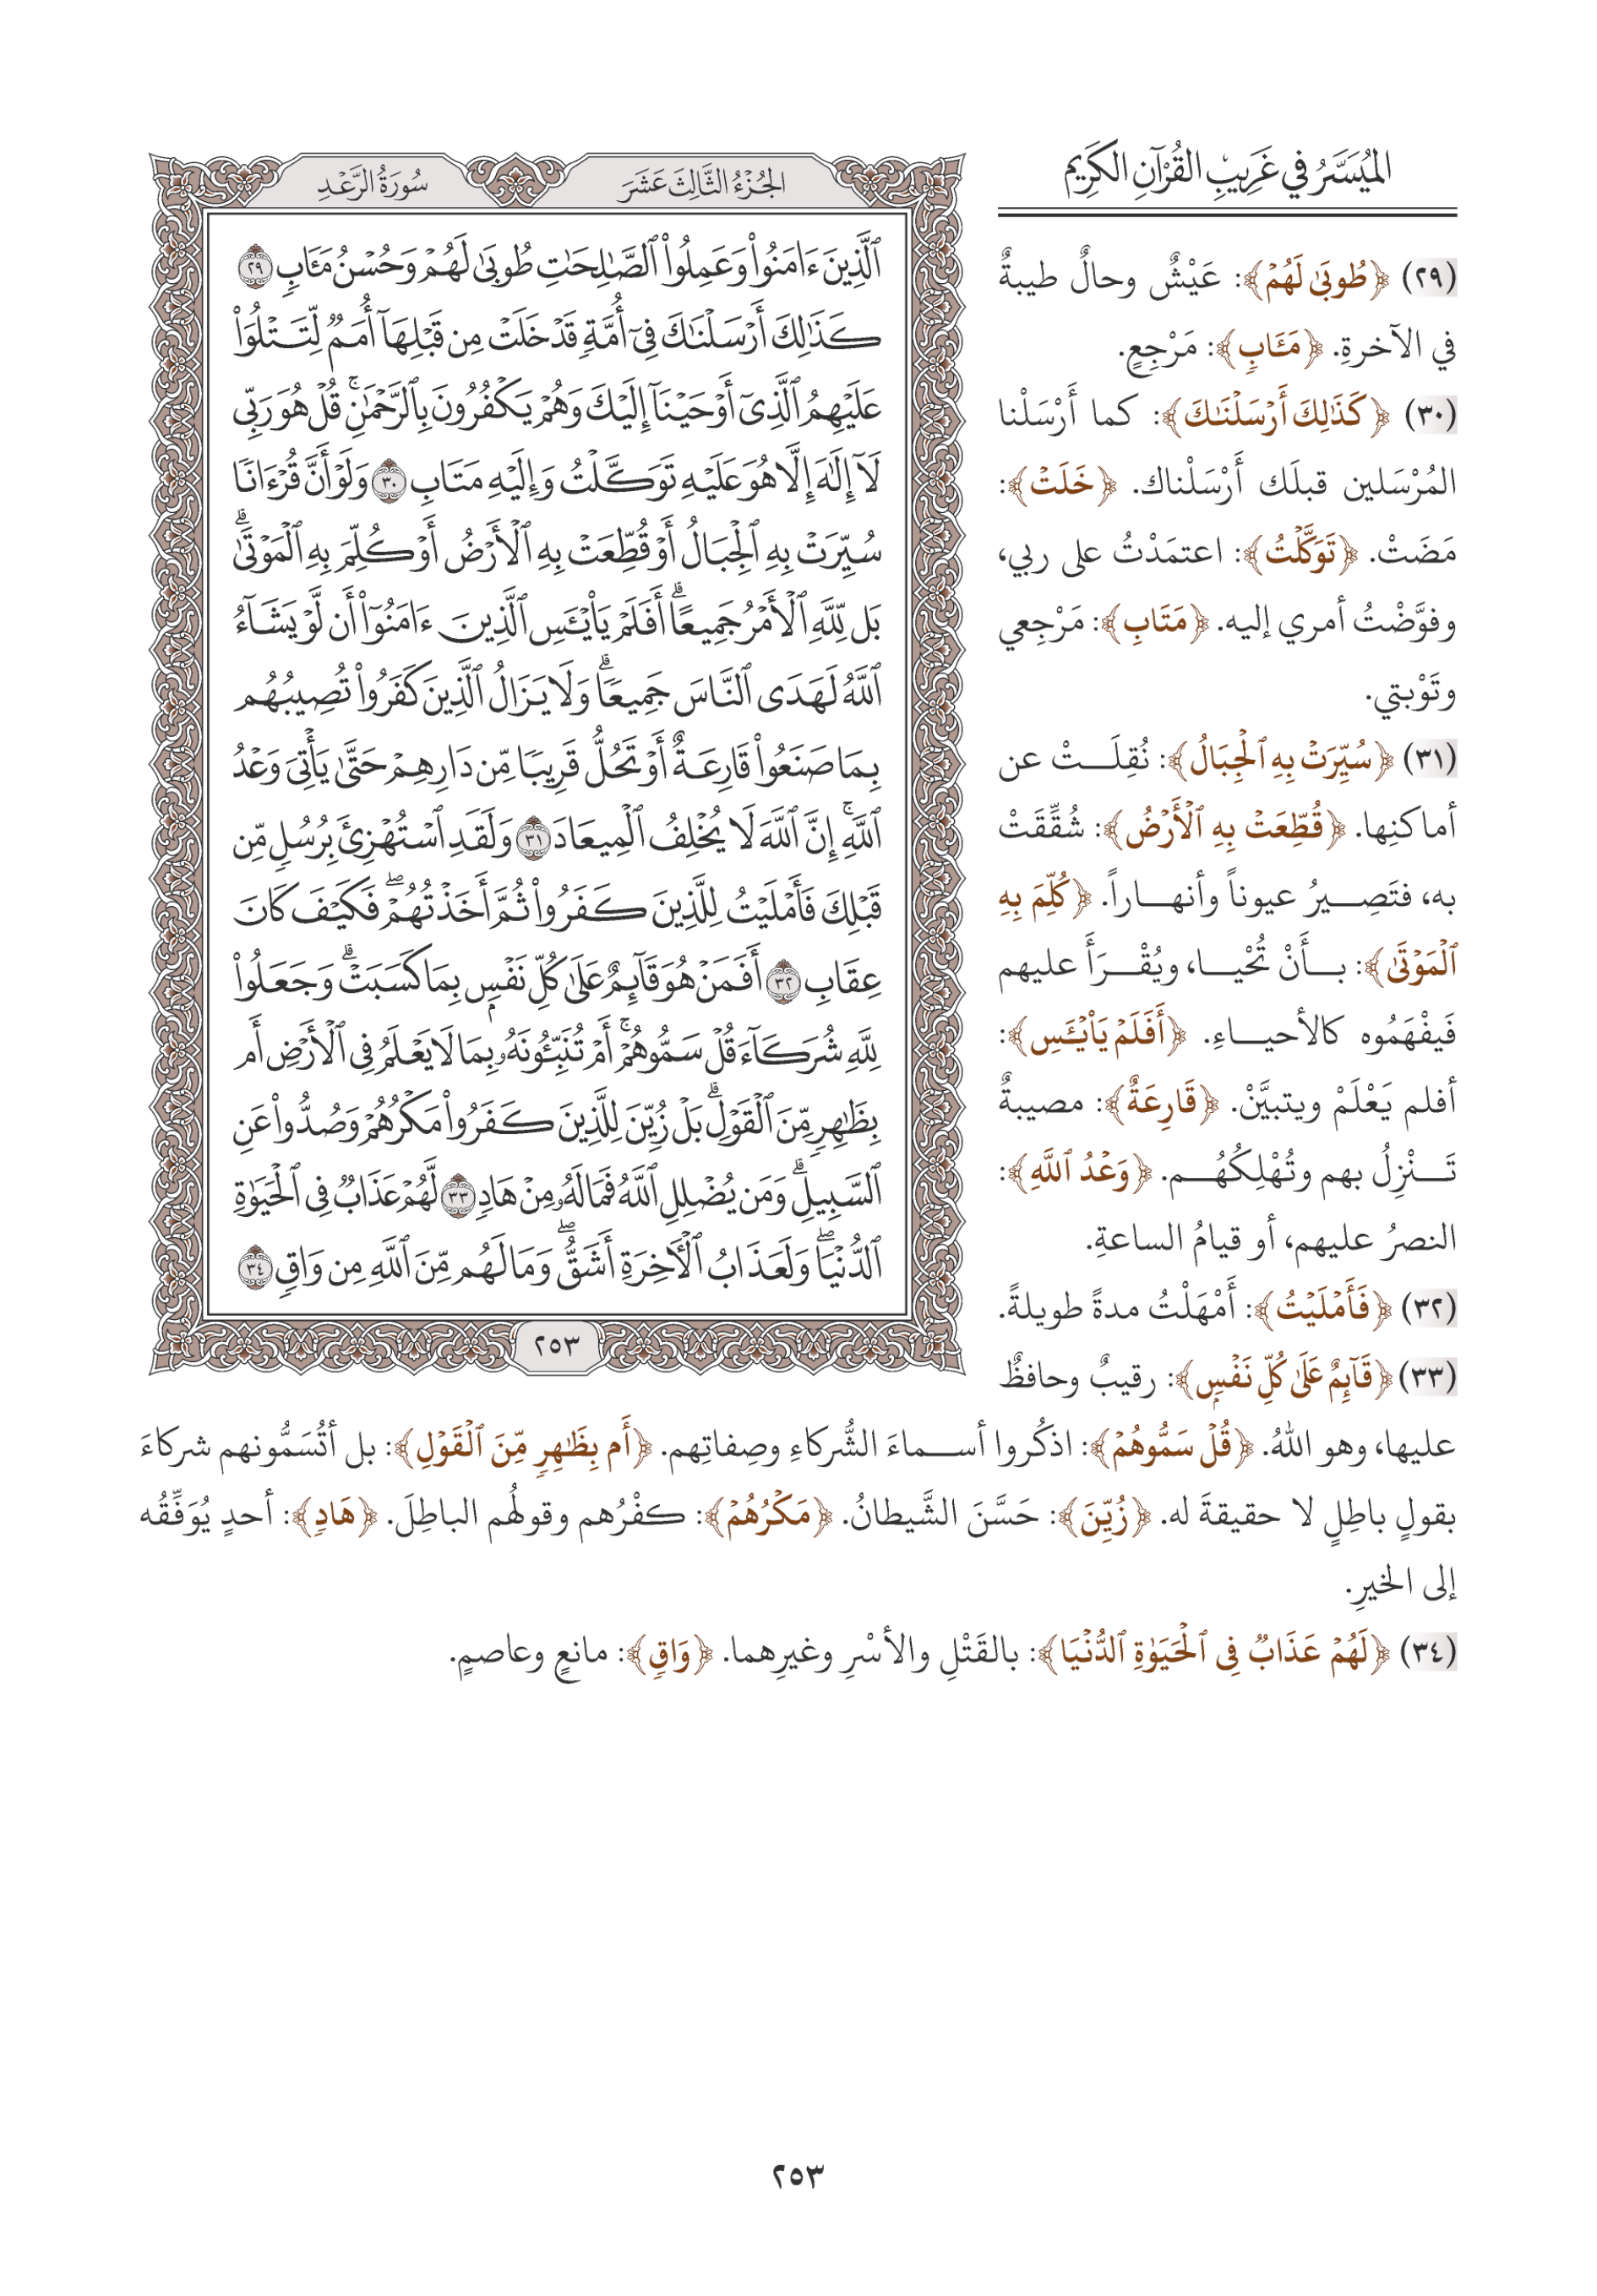 الميسر في غريب القرآن الكريم
(٢٩) ﴿طُوبَىٰ لَهُمۡ﴾: عَيْشٌ وحالٌ طيبةٌ
في الآخرةِ. ﴿مَـَٔابٖ﴾: مَرْجِعٍ.
(٣٠) ﴿كَذَٰلِكَ أَرۡسَلۡنَٰكَ﴾: كما أَرْسَلْنا
المُرْسَلين قبلَك أَرْسَلْناك. ﴿خَلَتۡ﴾:
مَضَتْ. ﴿تَوَكَّلۡتُ﴾: اعتمَدْتُ على ربي،
وفوَّضْتُ أمري إليه. ﴿مَتَابِ﴾: مَرْجِعي
وتَوْبتي.
(٣١) ﴿سُيِّرَتۡ بِهِ ٱلۡجِبَالُ﴾: نُقِلَتْ عن
أماكنِها. ﴿قُطِّعَتۡ بِهِ ٱلۡأَرۡضُ﴾: شُقِّقَتْ
به، فتَصِيرُ عيوناً وأنهاراً. ﴿كُلِّمَ بِهِ
ٱلۡمَوۡتَىٰ﴾: بأَنْ تُحْيا، ويُقْرَأَ عليهم
فَيفْهَمُوه كالأحياءِ. ﴿أَفَلَمۡ يَاْيۡـَٔسِ﴾:
أفلم يَعْلَمْ ويتبيَّنْ. ﴿قَارِعَةٌ﴾: مصيبةٌ
تَنْزِلُ بهم وتُهْلِكُهُم. ﴿وَعۡدُ ٱللَّهِ﴾:
النصرُ عليهم، أو قيامُ الساعةِ.
(٣٢) ﴿فَأَمۡلَيۡتُ﴾: أَمْهَلْتُ مدةً طويلةً.
(٣٣) ﴿قَآئِمٌ عَلَىٰ كُلِّ نَفۡسِۭ﴾: رقيبٌ وحافظٌ
عليها، وهو اللهُ. ﴿قُلۡ سَمُّوهُمۡ﴾: اذكُروا أسماءَ الشُّركاءِ وصِفاتِهم. ﴿أَم بِظَٰهِرٖ مِّنَ ٱلۡقَوۡلِ﴾: بل أتُسَمُّونهم شركاءَ
بقولٍ باطِلٍ لا حقيقةَ له. ﴿زُيِّنَ﴾: حَسَّنَ الشَّيطانُ. ﴿مَكۡرُهُمۡ﴾: كفْرُهم وقولُهم الباطِلَ. ﴿هَادٖ﴾: أحدٍ يُوَفِّقُه
إلى الخيرِ.
(٣٤) ﴿لَهُمۡ عَذَابٌ فِي ٱلۡحَيَوٰةِ ٱلدُّنۡيَا﴾: بالقَتْلِ والأسْرِ وغيرِهما. ﴿وَاقٖ﴾: مانعٍ وعاصمٍ.
الجُزْءُ الثَّالِثَ عَشَرَ
سُورَةُ الرَّعْدِ
ٱلَّذِينَ ءَامَنُواْ وَعَمِلُواْ ٱلصَّٰلِحَٰتِ طُوبَىٰ لَهُمۡ وَحُسۡنُ مَـَٔابٖ ٢٩
كَذَٰلِكَ أَرۡسَلۡنَٰكَ فِيٓ أُمَّةٖ قَدۡ خَلَتۡ مِن قَبۡلِهَآ أُمَمٞ لِّتَتۡلُوَاْ
عَلَيۡهِمُ ٱلَّذِيٓ أَوۡحَيۡنَآ إِلَيۡكَ وَهُمۡ يَكۡفُرُونَ بِٱلرَّحۡمَٰنِۚ قُلۡ هُوَ رَبِّي
لَآ إِلَٰهَ إِلَّا هُوَ عَلَيۡهِ تَوَكَّلۡتُ وَإِلَيۡهِ مَتَابِ ٣٠ وَلَوۡ أَنَّ قُرۡءَانٗا
سُيِّرَتۡ بِهِ ٱلۡجِبَالُ أَوۡ قُطِّعَتۡ بِهِ ٱلۡأَرۡضُ أَوۡ كُلِّمَ بِهِ ٱلۡمَوۡتَىٰۗ
بَل لِّلَّهِ ٱلۡأَمۡرُ جَمِيعًاۗ أَفَلَمۡ يَاْيۡـَٔسِ ٱلَّذِينَ ءَامَنُوٓاْ أَن لَّوۡ يَشَآءُ
ٱللَّهُ لَهَدَى ٱلنَّاسَ جَمِيعٗاۗ وَلَا يَزَالُ ٱلَّذِينَ كَفَرُواْ تُصِيبُهُم
بِمَا صَنَعُواْ قَارِعَةٌ أَوۡ تَحُلُّ قَرِيبٗا مِّن دَارِهِمۡ حَتَّىٰ يَأۡتِيَ وَعۡدُ
ٱللَّهِۚ إِنَّ ٱللَّهَ لَا يُخۡلِفُ ٱلۡمِيعَادَ ٣١ وَلَقَدِ ٱسۡتُهۡزِئَ بِرُسُلٖ مِّن
قَبۡلِكَ فَأَمۡلَيۡتُ لِلَّذِينَ كَفَرُواْ ثُمَّ أَخَذۡتُهُمۡۖ فَكَيۡفَ كَانَ
عِقَابِ ٣٢ أَفَمَنۡ هُوَ قَآئِمٌ عَلَىٰ كُلِّ نَفۡسِۭ بِمَا كَسَبَتۡۗ وَجَعَلُواْ
لِلَّهِ شُرَكَآءَ قُلۡ سَمُّوهُمۡۚ أَمۡ تُنَبِّـُٔونَهُۥ بِمَا لَا يَعۡلَمُ فِي ٱلۡأَرۡضِ أَم
بِظَٰهِرٖ مِّنَ ٱلۡقَوۡلِۗ بَلۡ زُيِّنَ لِلَّذِينَ كَفَرُواْ مَكۡرُهُمۡ وَصُدُّواْ عَنِ
ٱلسَّبِيلِۗ وَمَن يُضۡلِلِ ٱللَّهُ فَمَا لَهُۥ مِنۡ هَادٖ ٣٣ لَّهُمۡ عَذَابٞ فِي ٱلۡحَيَوٰةِ
ٱلدُّنۡيَاۖ وَلَعَذَابُ ٱلۡأٓخِرَةِ أَشَقُّۖ وَمَا لَهُم مِّنَ ٱللَّهِ مِن وَاقٖ ٣٤
٢٥٣
٢٥٣